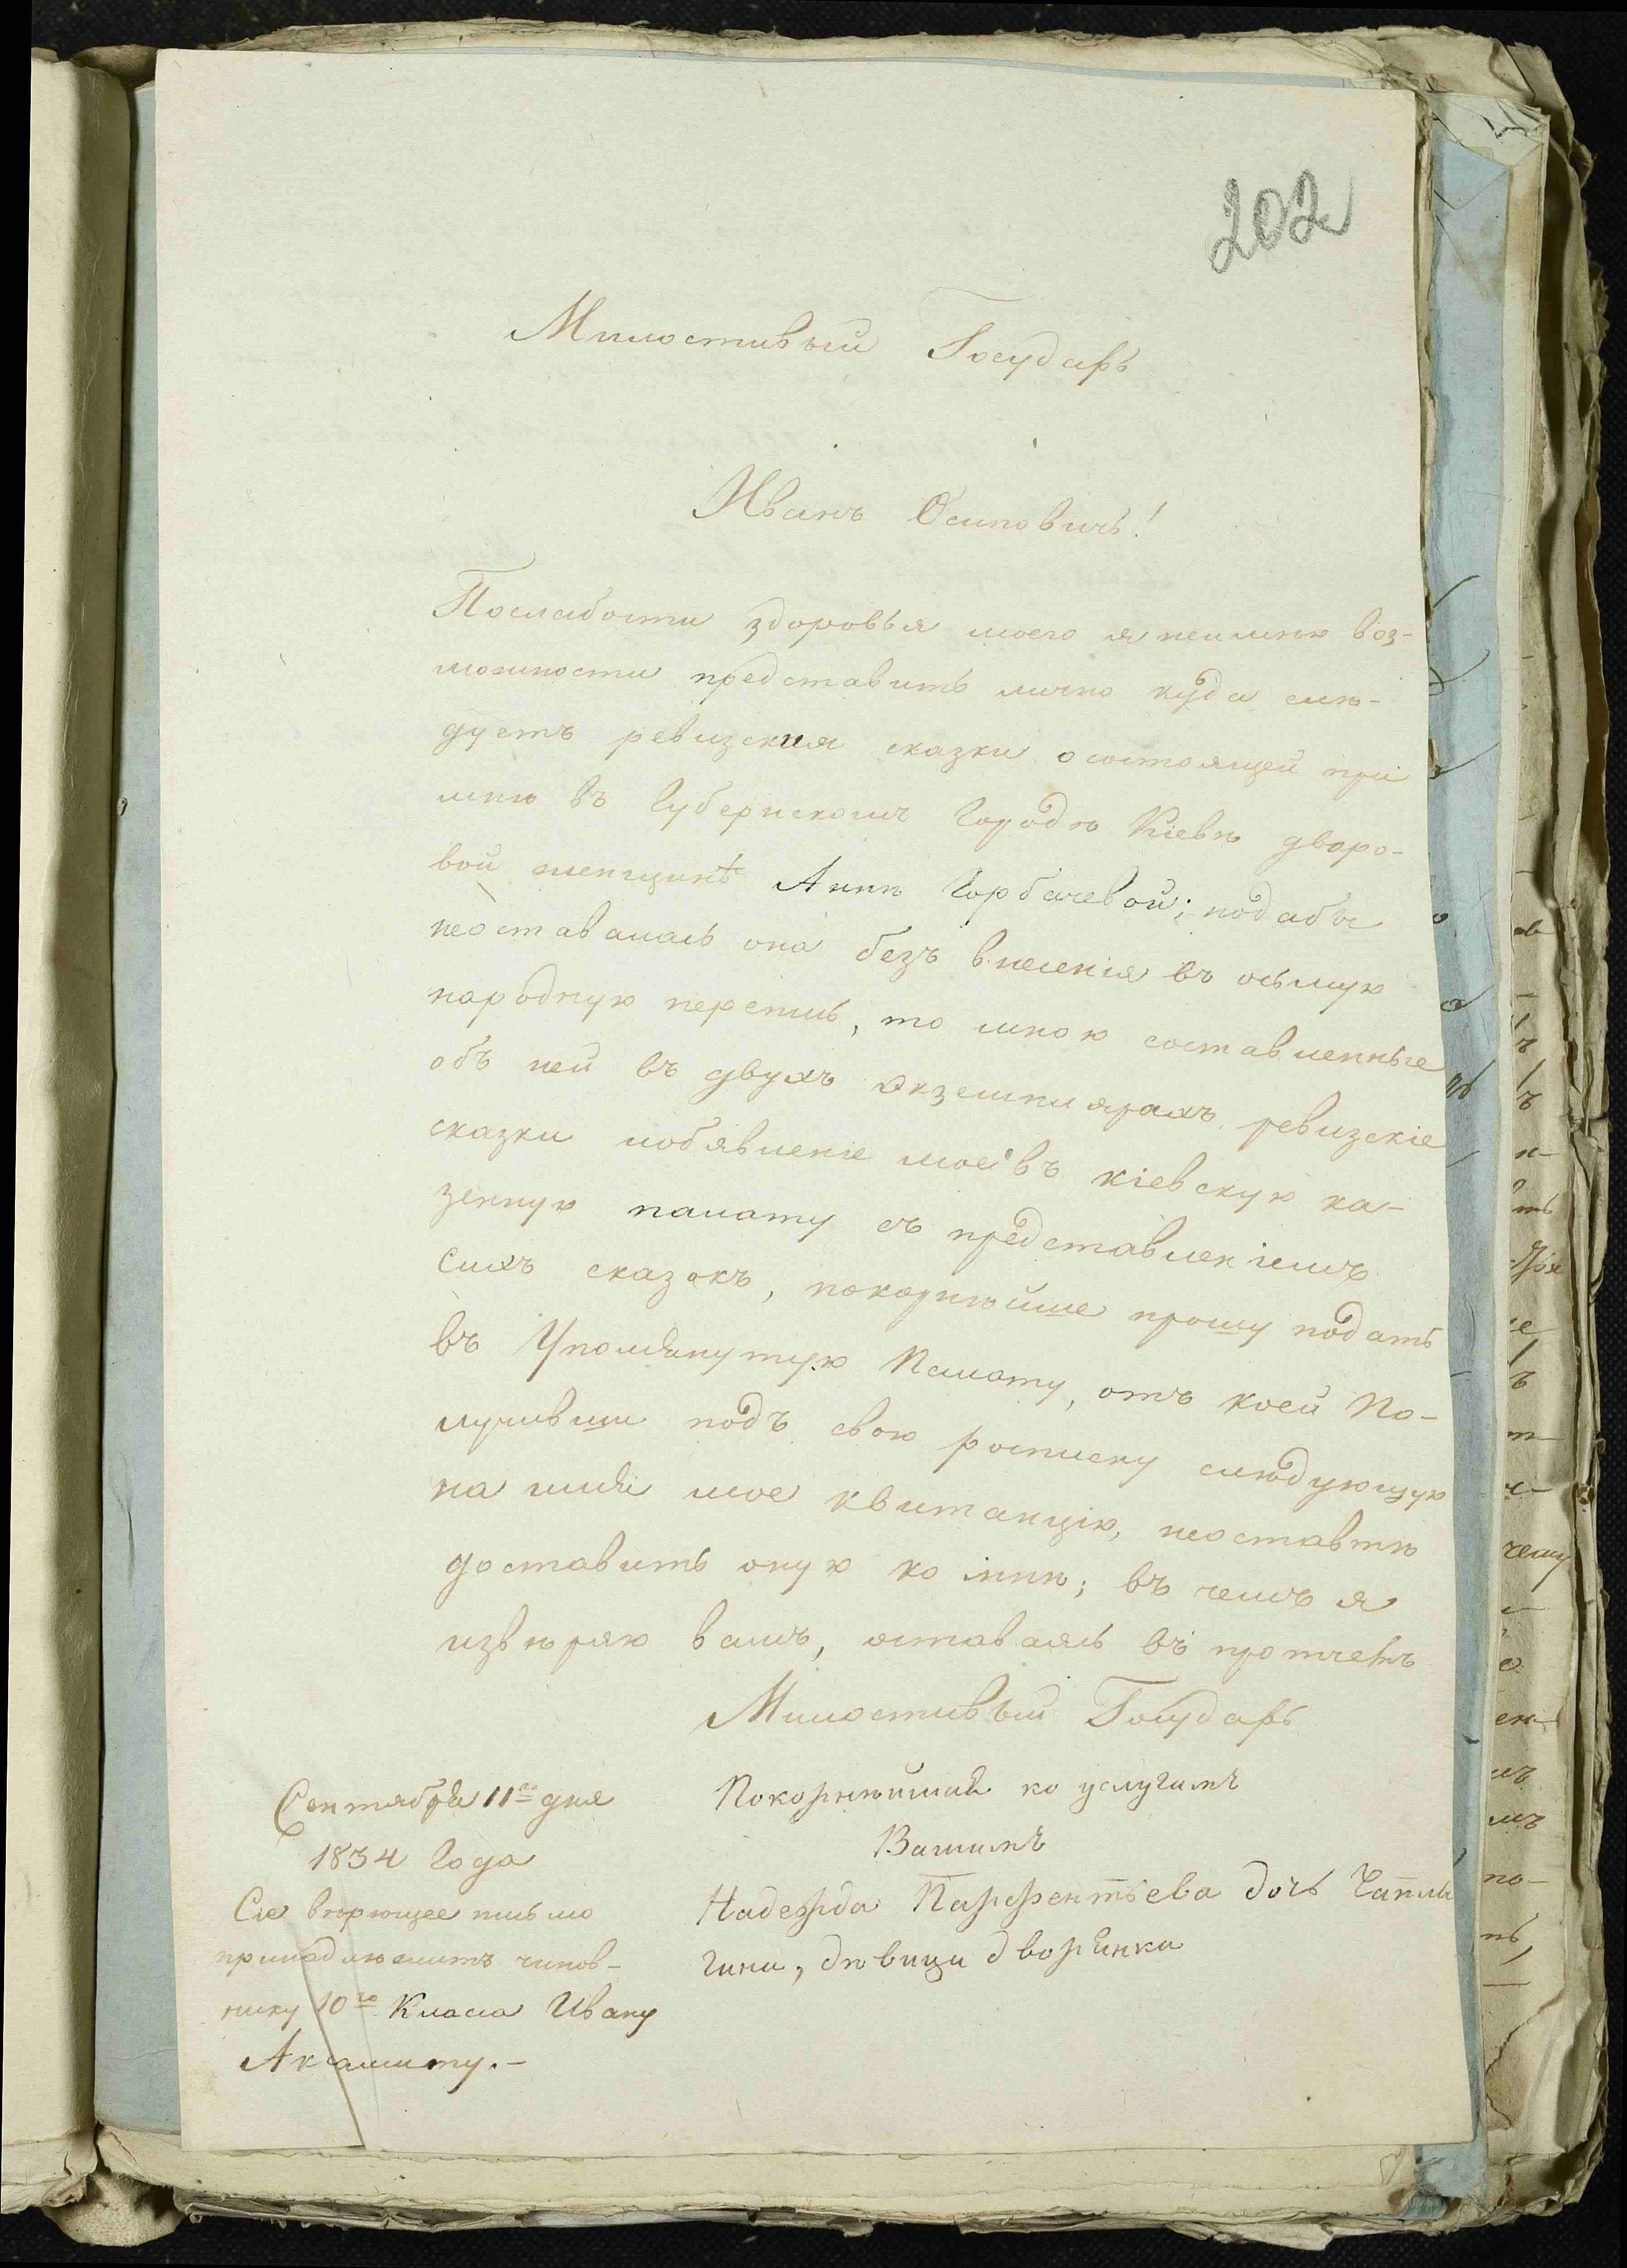 202
Милостивый Государь
Иванъ Осиповичь!
Послабости здоровья моего я неимѣю воз-
можности представить лично куда слѣ-
дуетъ ревизския сказки о состоящей при
мнѣ въ Губернскомъ Городѣ Кіевѣ дворо-
вой женщинѣ Аннѣ Горбачевой; подабы
неоставалась она безъ внесенія въ осьмую
народную перепись, то мною составленные
объ ней въ двухъ экземплярахъ ревизскіе
сказки иобявленіе мое въ кіевскую ка-
зенную палату съ представленіемъ
Сихъ сказокъ, покорнѣйше прошу подать
въ Упомянутую Палату, отъ коей По-
лучивши подъ свою росписку слѣдующую
на имя мое квитанцію, неоставте
доставить оную ко мнѣ; въ чемъ я
извѣряю вамъ, оставаясь въ протчемъ
Милостивый Государь
Покорнѣйшая ко услугамъ
Вашимъ
Надежда Парфентіева дочь Чаплы
гина, дѣвица дворянка
Сентября 11го дня
1834 Года
Сіе вѣрющее письмо
принадлѣжитъ чинов-
нику 10го Класа Ивану
Аксамиту.-